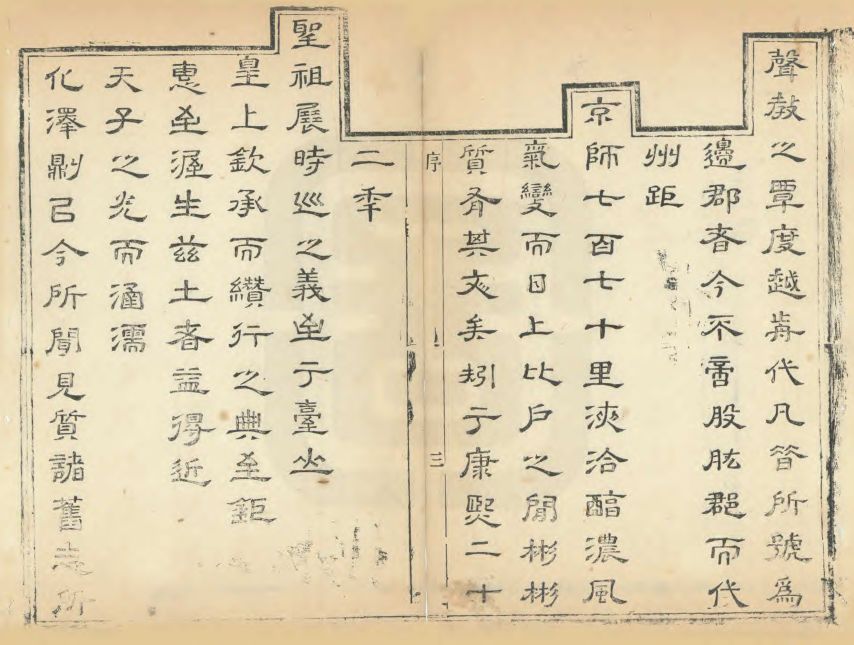 聲敎之覃度越歬代凡昔所號爲
邊郡者今不啻股肱郡而代
州距
京師七百七十里浹洽醕濃風
氣變而日上比戶之閒彬彬
質有其文矣矧于康熙二十
序
三
二年
聖祖展時巡之義至于臺山
皇上欽承而纘行之典至鉅
惠至渥生茲土者益得近
天子之光而涵濡
化澤則㠯今所聞見質諸舊志所